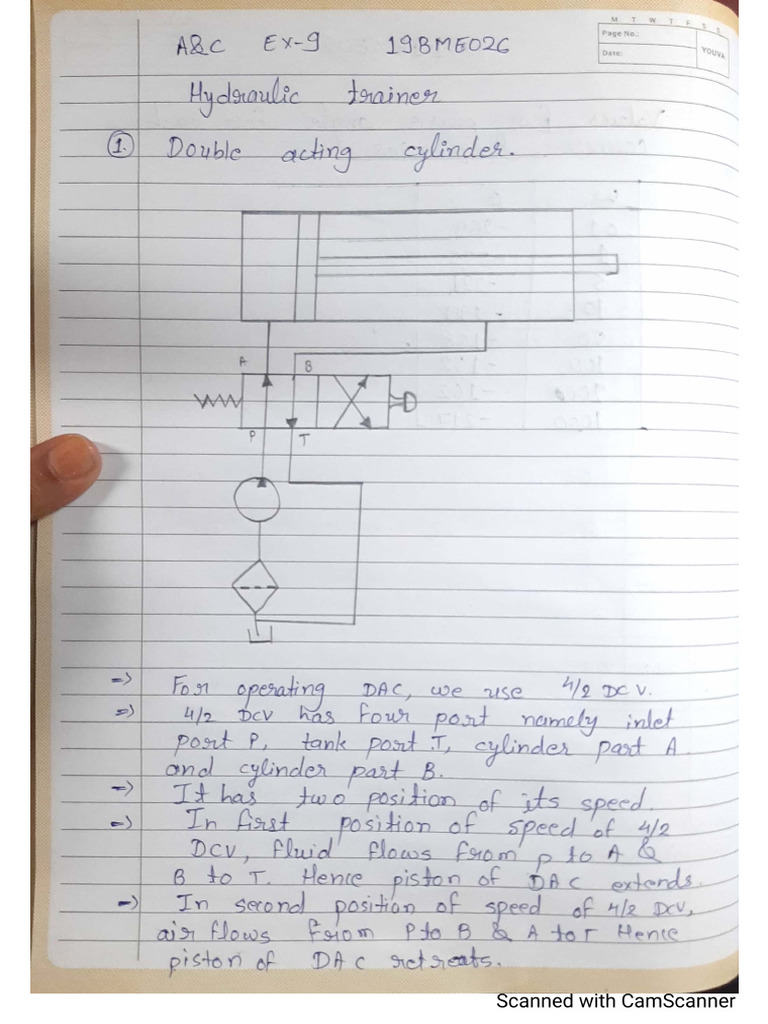 M T W T F S S
Page No.:
Date:
YOUVA
A&C Ex-9 19BME026
Hydraulic trainer
1. Double acting cylinder.
A B
P T
=> For operating DAC, we use 4/2 DCV.
=> 4/2 DCV has four port namely inlet
port P, tank port T, cylinder part A
and cylinder part B.
=> It has two position of its speed.
=> In first position of speed of 4/2
DCV, fluid flows from p to A &
B to T. Hence piston of DAC extends.
=> In second position of speed of 4/2 DCV,
air flows from P to B & A to T Hence
piston of DAC retreats.
Scanned with CamScanner